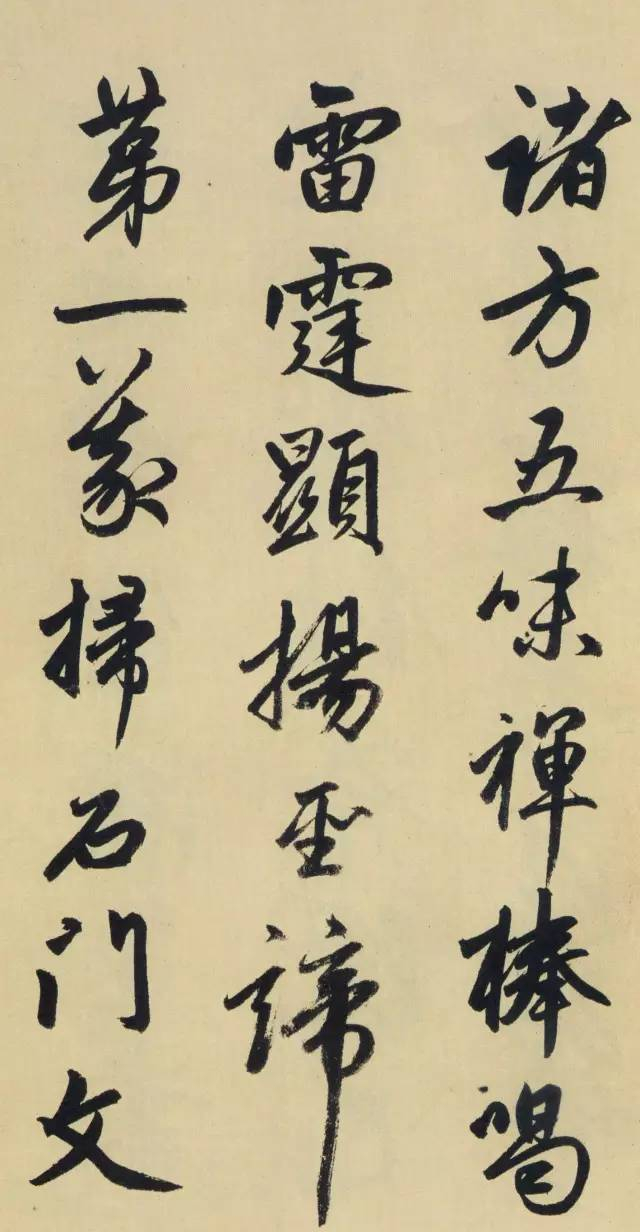 诸方五味禅棒喝
雷霆顯揚圣諦
苐一義掃石门文